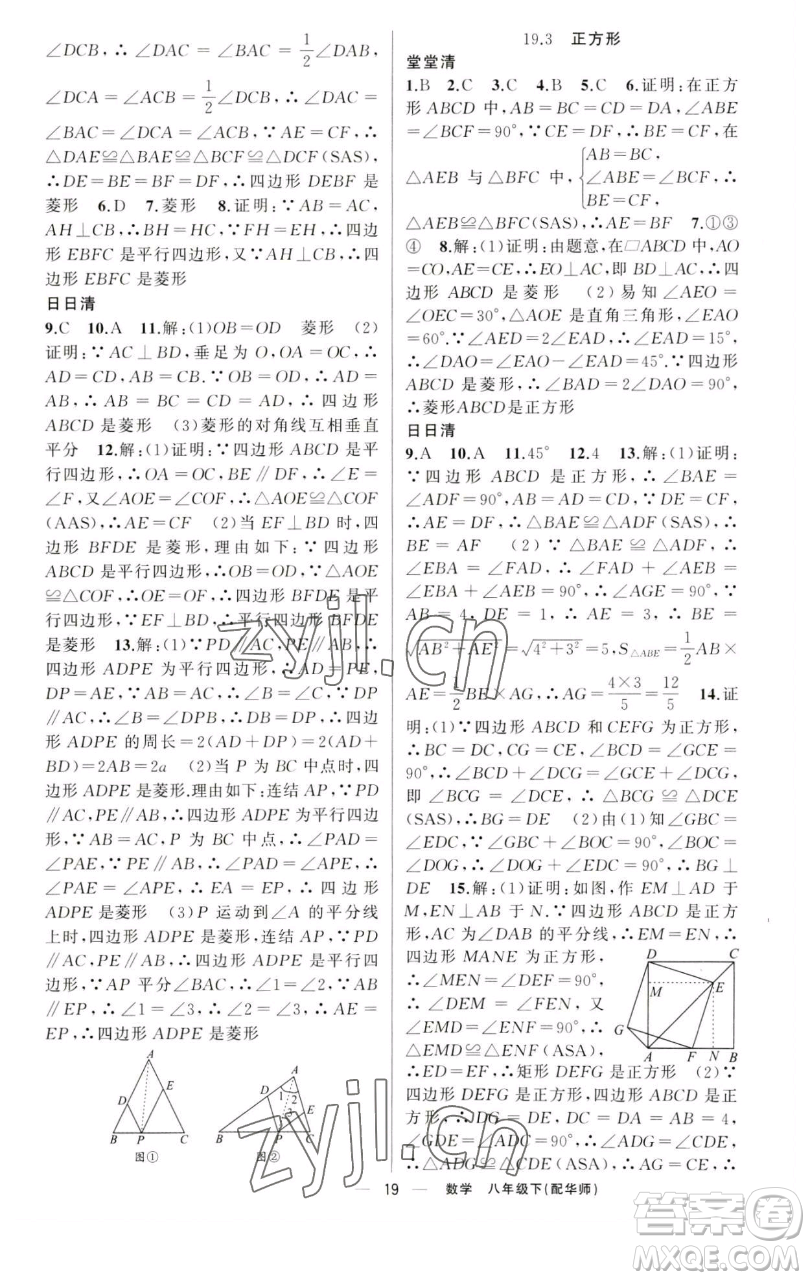 ∠DCB,∴∠DAC=∠BAC=1/2∠DAB,
∠DCA=∠ACB=1/2∠DCB,∴∠DAC=
∠BAC=∠DCA=∠ACB,∵AE=CF,∴
△DAE≌△BAE≌△BCF≌△DCF(SAS),
∴DE=BE=BF=DF,∴四边形DEBF是
菱形 6.D 7.菱形 8.证明:∵AB=AC,
AH⊥CB,∴BH=HC,∵FH=EH,∴四
边形EBFC是平行四边形,又∵AH⊥CB,∴四
边形EBFC是菱形
日日清
9.C 10.A 11.解:(1)OB=OD 菱形 (2)
证明:∵AC⊥BD,垂足为O,OA=OC,∴
AD=CD,AB=BC,∵OB=OD,∴AB=
AD,∴AB=BC=CD=AD,∴四边形
ABCD是菱形 (3)菱形的对角线互相垂直
平分 12.解:(1)证明:∵四边形ABCD是平
行四边形,∴OA=OC,BE∥DF,∴∠E=
∠F,又∠AOE=∠COF,∴△AOE≌△COF
(AAS),∴AE=CF (2)当EF⊥BD时,四
边形BFDE是菱形,理由如下:∵四边形
ABCD是平行四边形,∴OB=OD,∵△AOE
≌△COF,∴OE=OF,∴四边形BFDE是平
行四边形,∵EF⊥BD,∴四边形BFDE
是菱形 13.解:(1)∵PD∥AC,PE∥AB,∴
四边形ADPE为平行四边形,∴AD=PE,
DP=AE,∵AB=AC,∴∠B=∠C,∵DP
∥AC,∴∠B=∠DPB,∴DB=DP,∴四边
形ADPE的周长=2(AD+DP)=2(AD+
BD)=2AB=2a (2)当P为BC中点时,四
边形ADPE是菱形.理由如下:连结AP,∵PD
∥AC,PE∥AB,∴四边形ADPE为平行四边
形,∵AB=AC,P为BC中点,∴∠PAD=
∠PAE,∵PE∥AB,∴∠PAD=∠APE,∴
∠PAE=∠APE,∴EA=EP,∴四边形
ADPE是菱形 (3)P运动到∠A的平分线
上时,四边形ADPE是菱形,连结AP,∵PD
∥AC,PE∥AB,∴四边形ADPE是平行四边
形,∵AP平分∠BAC,∴∠1=∠2,∵AB∥
EP,∴∠1=∠3,∴∠2=∠3,∴AE=
EP,∴四边形ADPE是菱形
A
D E
B P C
图①
A
D 1 2
3 E
B P C
图②
19.3 正方形
堂堂清
1.B 2.C 3.C 4.B 5.C 6.证明:在正方
形ABCD中,AB=BC=CD=DA,∠ABE
=∠BCF=90°,∵CE=DF,∴BE=CF,在
△AEB与△BFC中,{AB=BC,
∠ABE=∠BCF,∴
BE=CF,
△AEB≌△BFC(SAS),∴AE=BF 7.①③
④ 8.解:(1)证明:由题意,在▱ABCD中,AO
=CO,AE=CE,∴EO⊥AC,即BD⊥AC,∴四
边形ABCD是菱形 (2)易知∠AEO=
∠OEC=30°,△AOE是直角三角形,∴∠EAO
=60°.∵∠AED=2∠EAD,∴∠EAD=15°,
∴∠DAO=∠EAO-∠EAD=45°.∵四边形
ABCD是菱形,∴∠BAD=2∠DAO=90°,
∴菱形ABCD是正方形
日日清
9.A 10.A 11.45° 12.4 13.解:(1)证明:
∵四边形ABCD是正方形,∴∠BAE=
∠ADF=90°,AB=AD=CD,∵DE=CF,
∴AE=DF,∴△BAE≌△ADF(SAS),∴
BE=AF (2)∵△BAE≌△ADF,∴
∠EBA=∠FAD,∴∠GAE+∠AEG=
∠EBA+∠AEB=90°,∴∠AGE=90°,∵
AB=4,DE=1,∴AE=3,∴BE=
√(AB²+AE²)=√(4²+3²)=5,S△ABE=1/2AB×
AE=1/2BE×AG,∴AG=4×3/5=12/5 14.证
明:(1)∵四边形ABCD和CEFG为正方形,
∴BC=DC,CG=CE,∠BCD=∠GCE=
90°,∴∠BCD+∠DCG=∠GCE+∠DCG,
即∠BCG=∠DCE,∴△BCG≌△DCE
(SAS),∴BG=DE (2)由(1)知∠GBC=
∠EDC,∵∠GBC+∠BOC=90°,∠BOC=
∠DOG,∴∠EDC+∠DOG=90°,∴BG⊥
DE 15.解:(1)证明:如图,作EM⊥AD于
M,EN⊥AB于N.∵四边形ABCD是正方
形,AC为∠DAB的平分线,∴EM=EN,∴
四边形MANE为正方形,
∴∠MEN=∠DEF=90°,
∴∠DEM=∠FEN,又
∠EMD=∠ENF=90°,∴
△EMD≌△ENF(ASA),
∴ED=EF,∴矩形DEFG是正方形 (2)∵
四边形DEFG是正方形,四边形ABCD是正方
形,∴DG=DE,DC=DA=AB=4,
∠GDE=∠ADC=90°,∴∠ADG=∠CDE,
∴△ADG≌△CDE(SAS),∴AG=CE,∴
D C
M E
G
A F N B
19 数学 八年级下(配华师)
zyjl.cn
zyjl.cn
答案圈
MXQE.COM